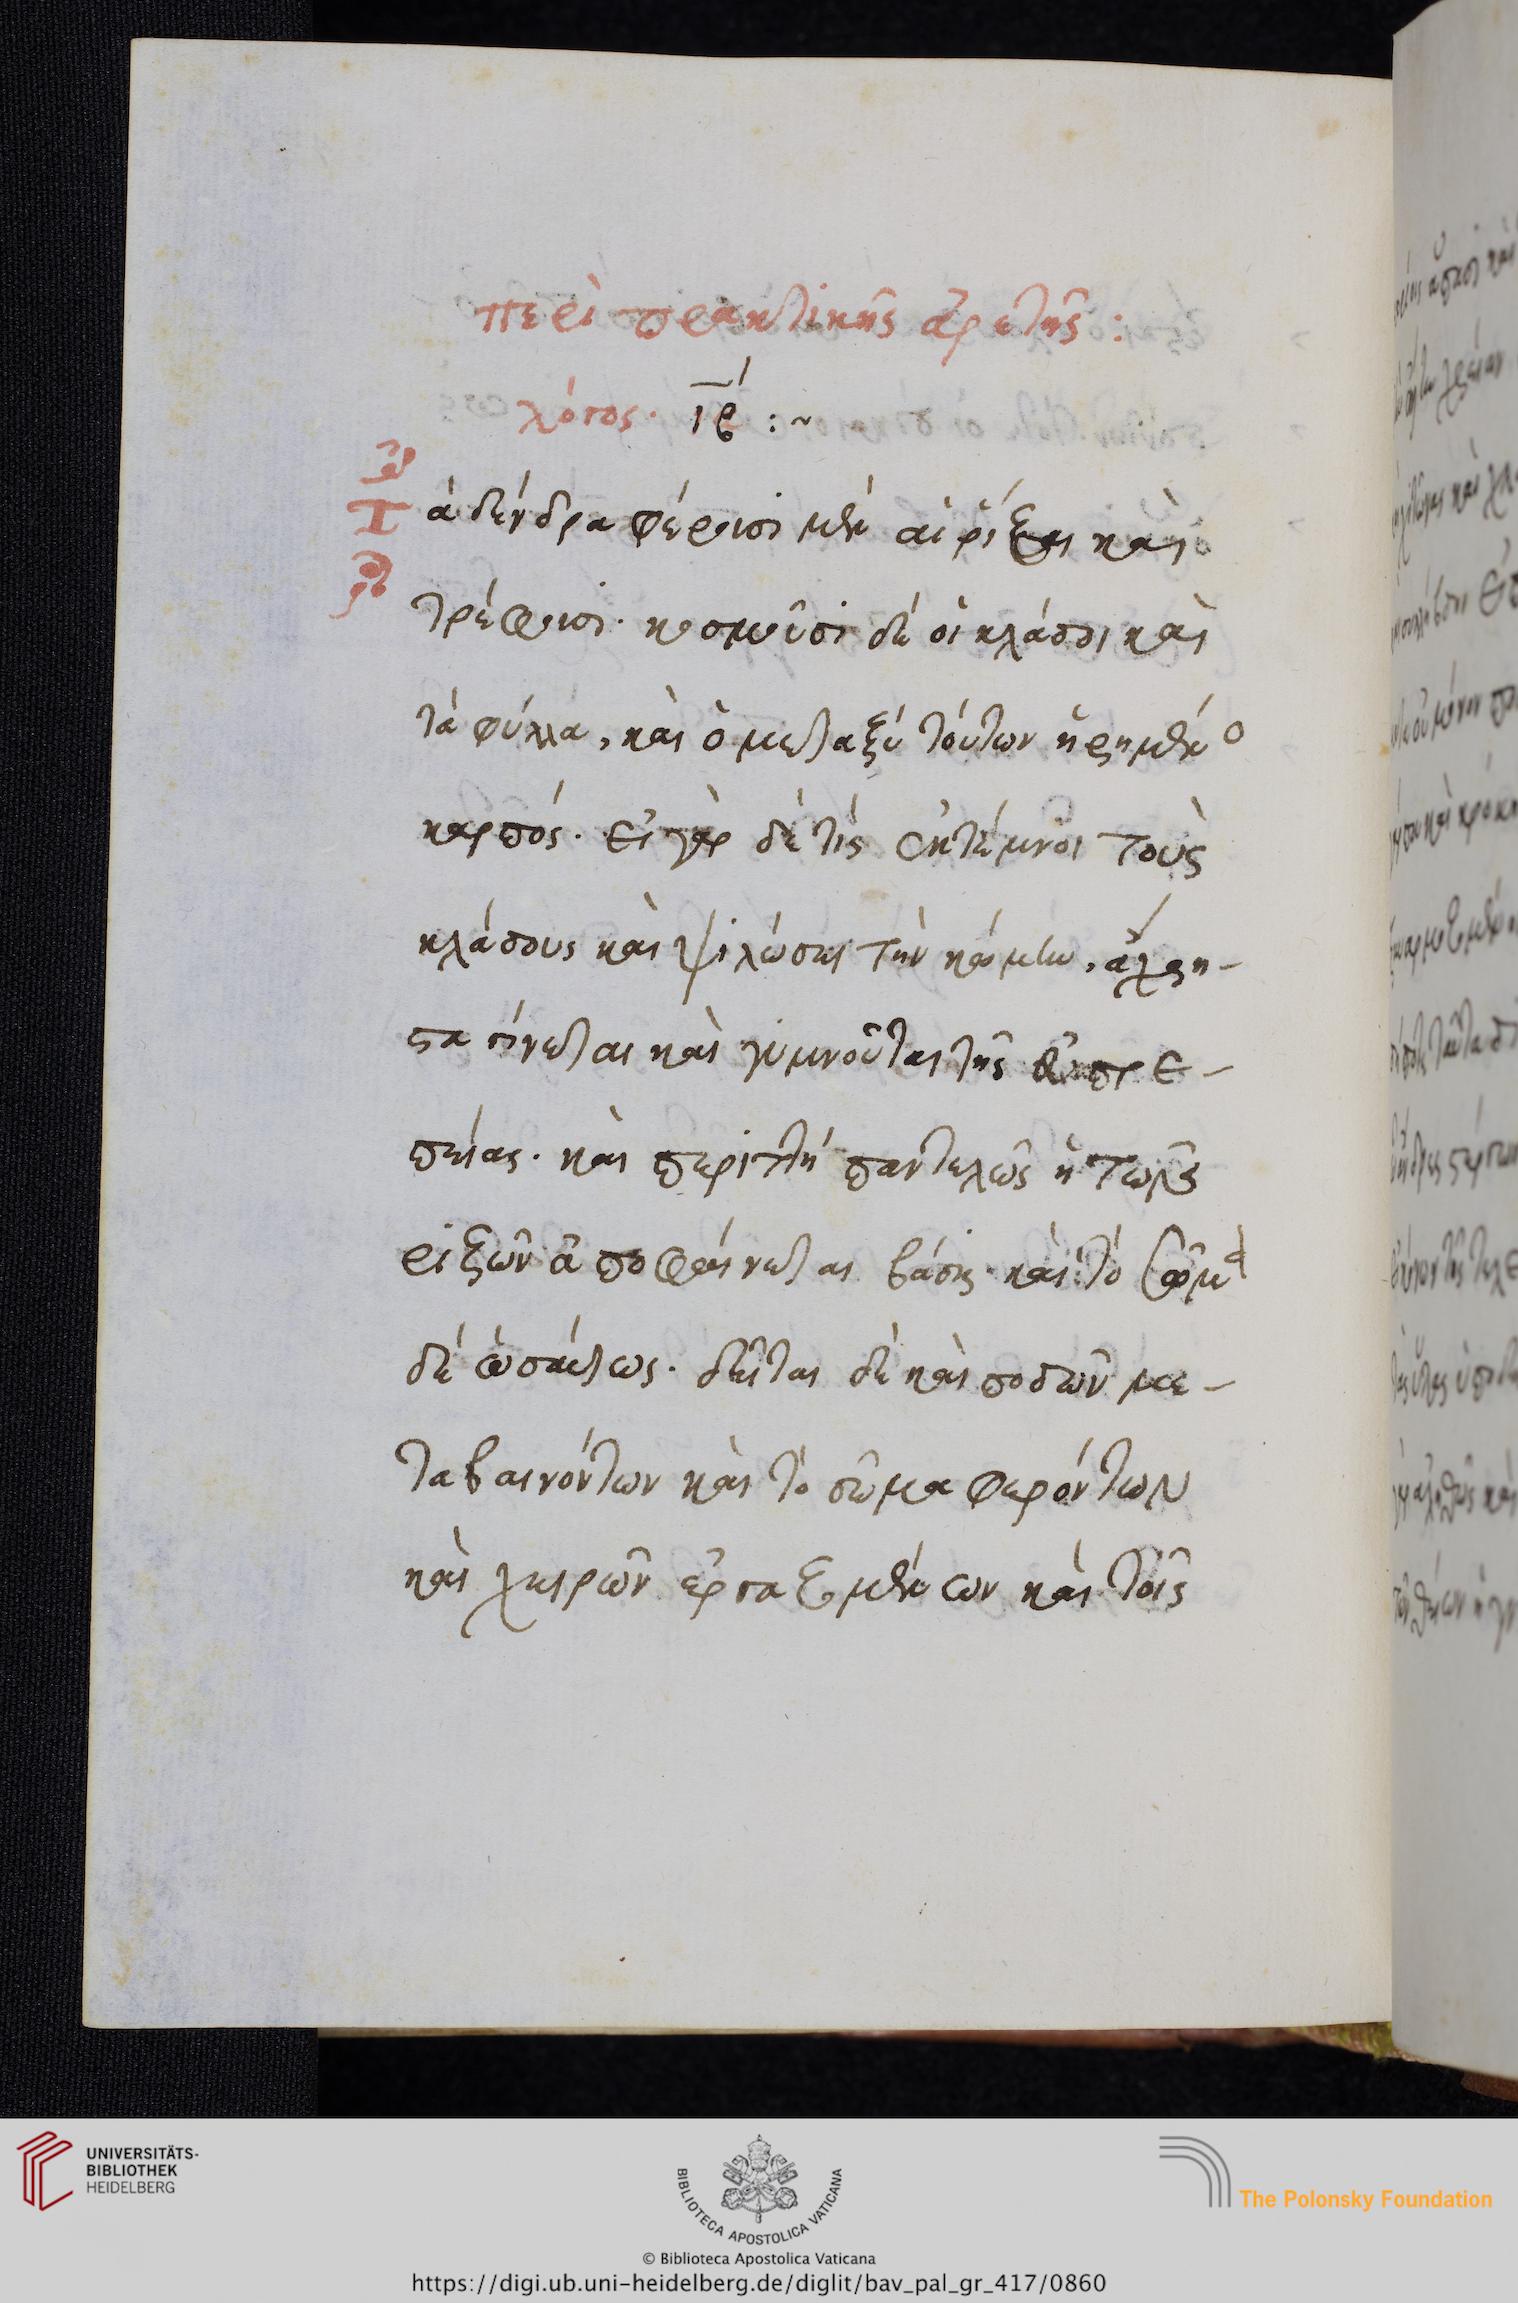 περὶ πρακτικῆς ἀρετῆς :
λόγος · ιβ : ~
Τ
ὰ δένδρα φέρουσι μὲν αἱ ῥίζαι καὶ
τρέφουσι · κοσμοῦσι δὲ οἱ κλάδοι καὶ
τὰ φύλλα , καὶ ὁ μεταξὺ τούτων ᾐρημένο
καρπός · εἰ γὰρ δέ τις ἐκτέμνοι τοὺς
κλάδους καὶ ψιλώσει τὴν κόμην , ἄχρη-
στα γίνεται καὶ γυμνοῦται τῆς εὐπρε-
πείας · καὶ περιττὴ παντελῶς ἡ τῶν
ριζῶν ἀποφαίνεται βάσις · καὶ τὸ σῶμα
δὲ ὡσαύτως · δεῖται δὲ καὶ ποδῶν με-
ταβαινόντων καὶ τὸ σῶμα φερόντων
καὶ χειρῶν ἐργαζομένων καὶ τοῖς
UNIVERSITÄTS-
BIBLIOTHEK
HEIDELBERG
BIBLIOTECA APOSTOLICA VATICANA
The Polonsky Foundation
© Biblioteca Apostolica Vaticana
https://digi.ub.uni-heidelberg.de/diglit/bav_pal_gr_417/0860